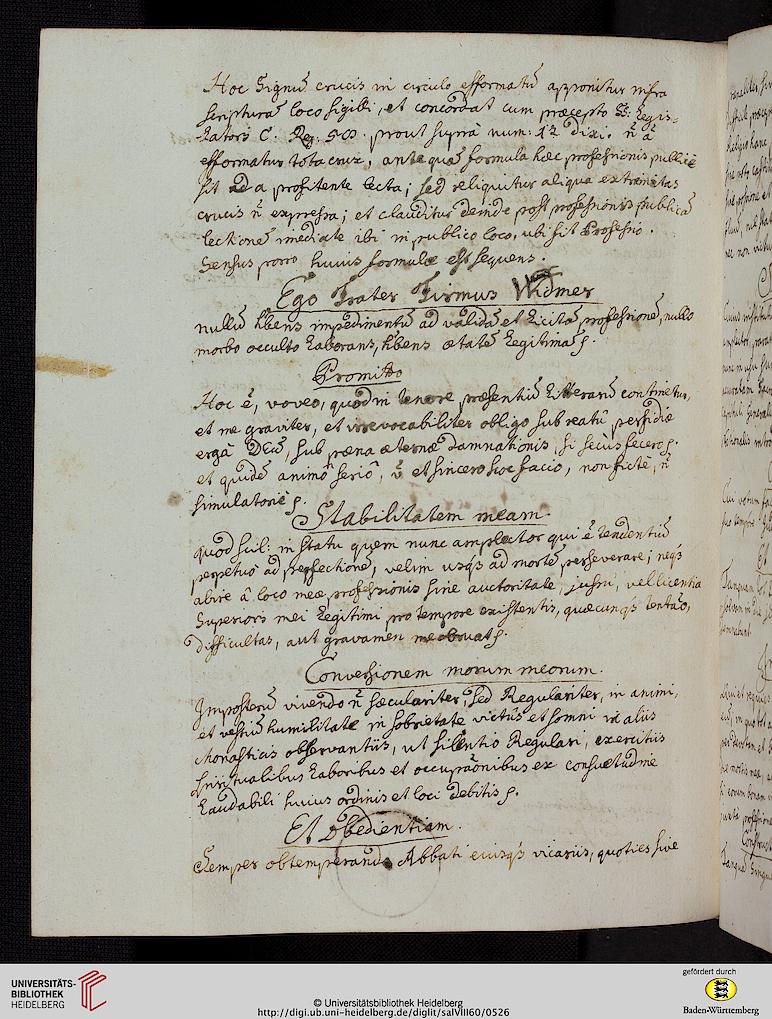 Hoc Signū crucis in circulo efformatū apponitur infra
scripturā loco sigilli, et concordat cum præcepto SS: Legis=
latoris C. Reg. 58. prout suprà num: 12 dixi. n̄ ā
efformatur tota crux, antequā formula hæc professionis publicè
sit ad a profitente lecta; sed relinquitur aliqua extremitas
crucis n̄ expressa; et clauditur deinde post professionis publicā
lectionē imediate ibi in publico loco, ubi fit Professio.
Sensus porro huius formulæ est sequens.
Ego Frater Firmus Widmer
nullū hbens impedimentū ad validā et licitā professionē, nullo
morbo occulto laborans, hbens ætatē legitimā ꝭ.
Promitto
Hoc ē, voveo, quod in tenore præsentiū litterarū continetur,
et me graviter, et irrevocabiliter obligo sub reatū perfidiæ
ergà Deū, sub pœna æternæ damnationis, si secus fecero ꝭ.
et quidē animô seriô, et sincero hoc facio, non fictè, n̄
simulatoriè ꝭ.
Stabilitatem meam.
quod scil: in statu quem nunc amplector qui ē tendentiū
perpetuò ad perfectionē, velim usqꝫ ad mortē perseverare; neqꝫ
abire â loco meæ professionis sine auctoritate, jussu, vel licentia
Superioris mei legitimi pro tempore existentis, quæcunqꝫ tentāo,
difficultas, aut gravamen me obruat ꝭ.
Conversionem morum meorum.
Imposterū vivendo n̄ sæculariter, sed Regulariter, in animi,
et vestiū humilitate in sobrietate victûs et somni in aliis
Monasticis observantiis, ut silentio Regulari, exercitiis
spiritualibus laboribus et occupāonibus ex consuetudine
laudabili huius ordinis et loci debitis ꝭ.
Et Obedientiam.
Semper obtemperando Abbati eiusqꝫ vicariis, quoties sive
UNIVERSITÄTS-
BIBLIOTHEK
HEIDELBERG
© Universitätsbibliothek Heidelberg
http://digi.ub.uni-heidelberg.de/diglit/salVIII60/0526
gefördert durch
Baden-Württemberg